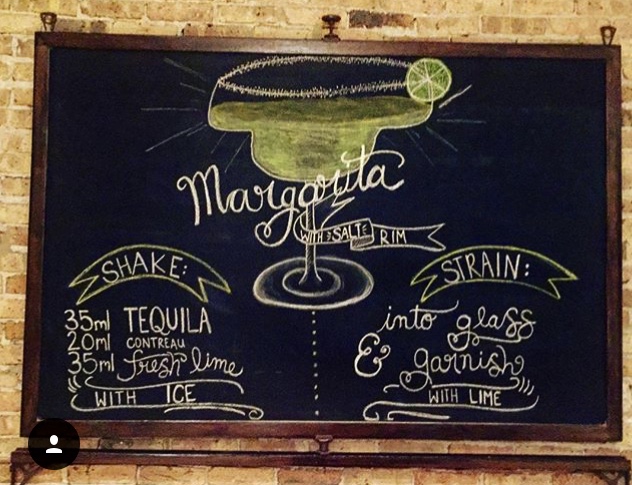 Margarita
WITH SALT RIM
SHAKE:
35ml TEQUILA
20ml CONTREAU
35ml fresh lime
WITH ICE
STRAIN:
into glass
& garnish
WITH LIME